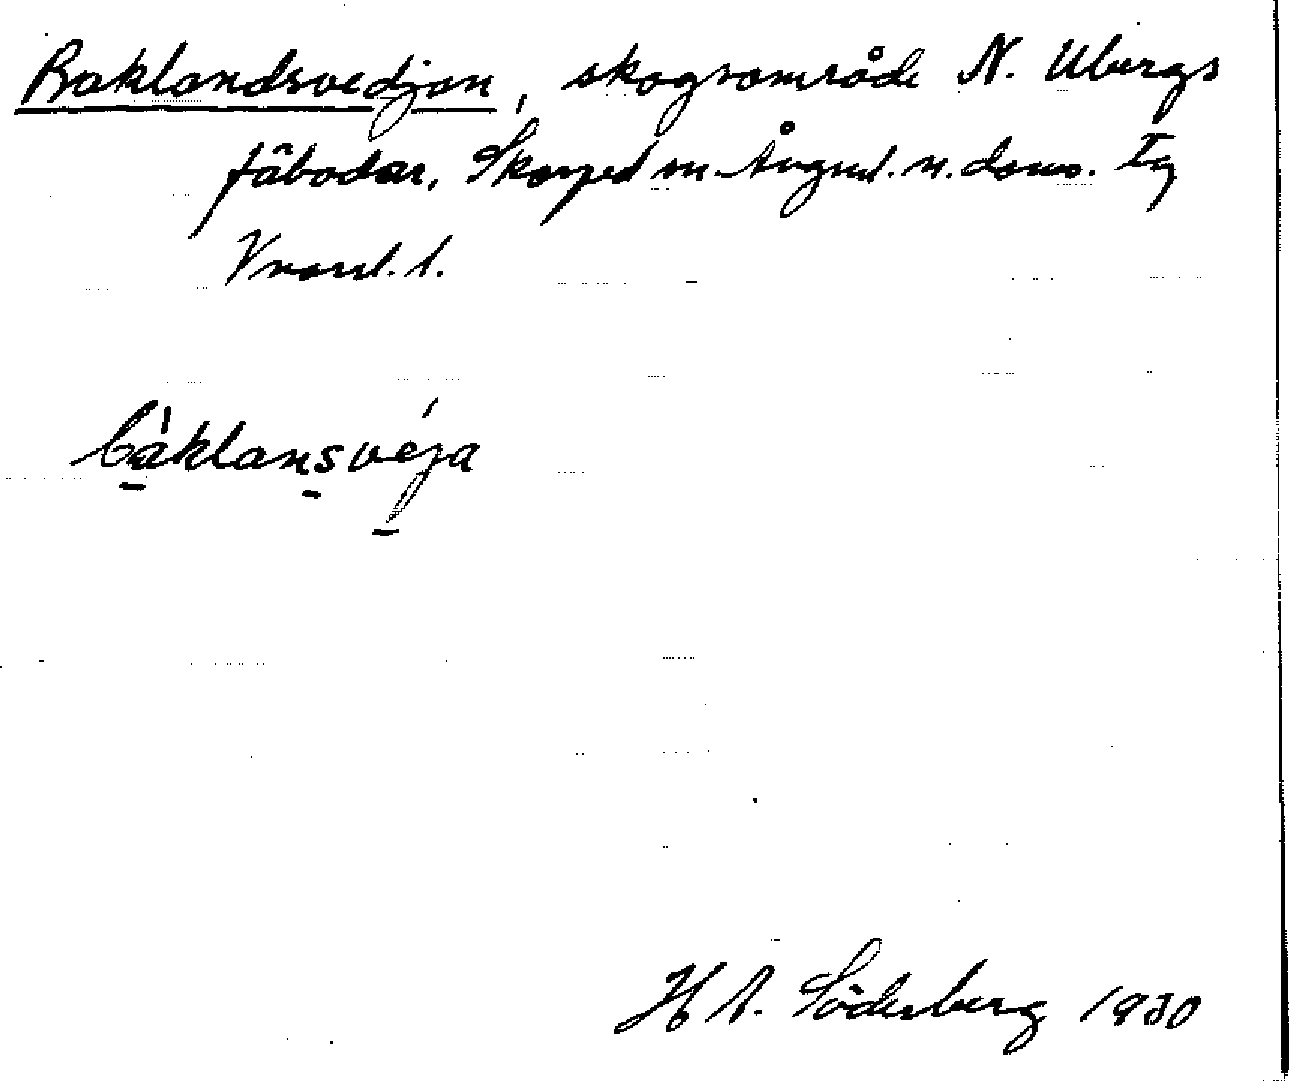 Baklandsvedjan, skogsområde N. Ubergs
fäbodar, Skorped sn. Ångml. n. doms. Tg
Vnorrl. l.
bàklansvéja
H A. Söderberg 1930